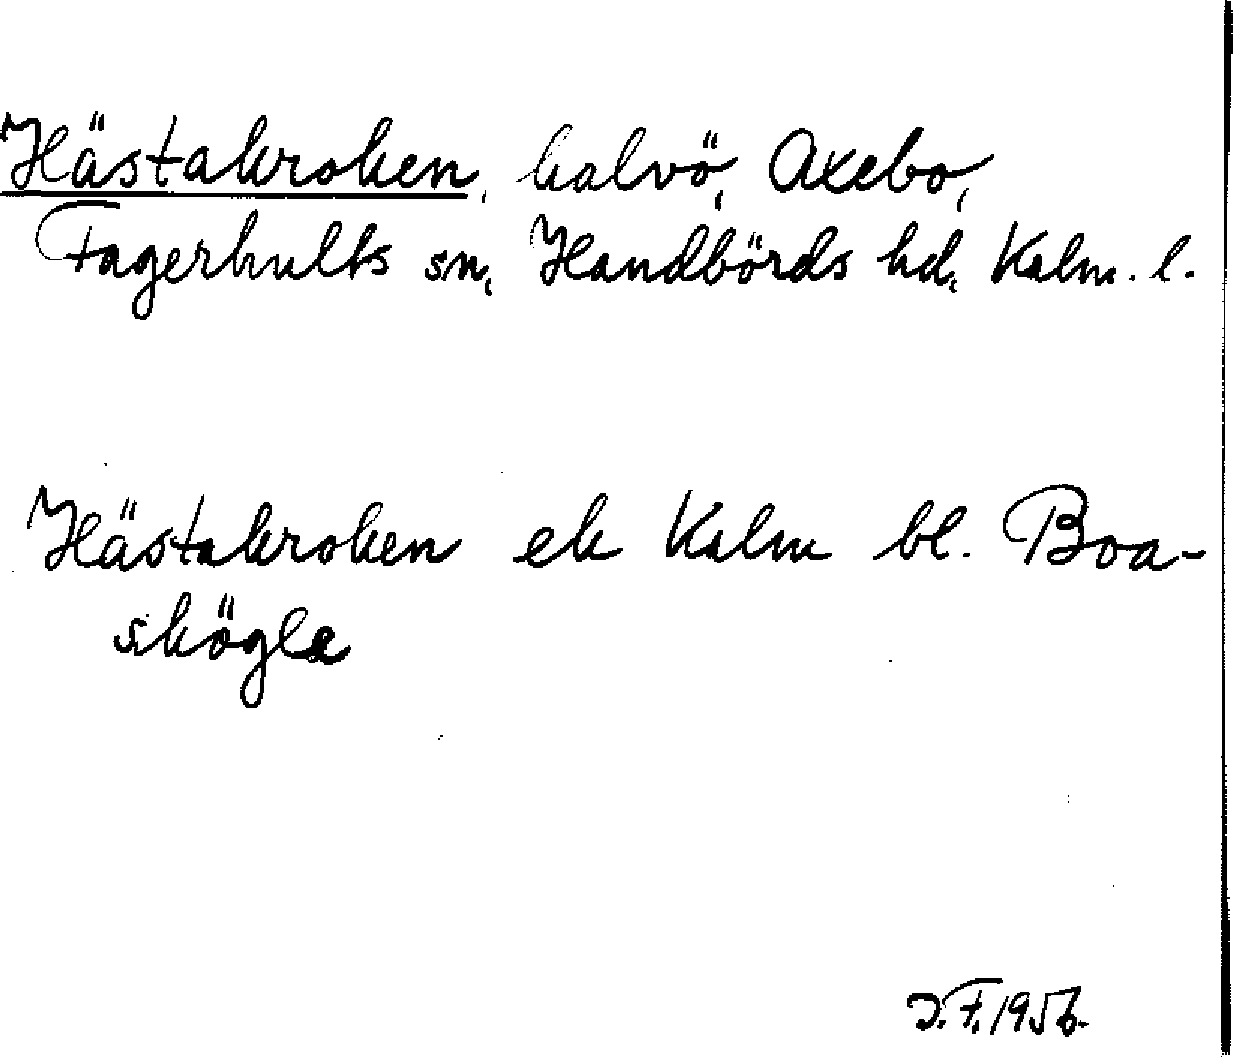 Hästakroken, halvö, Axebo,
Fagerhults sn, Handbörds hd, Kalm. l.
Hästakroken ek Kalm bl. Boa-
skögle
J.F. 1956.